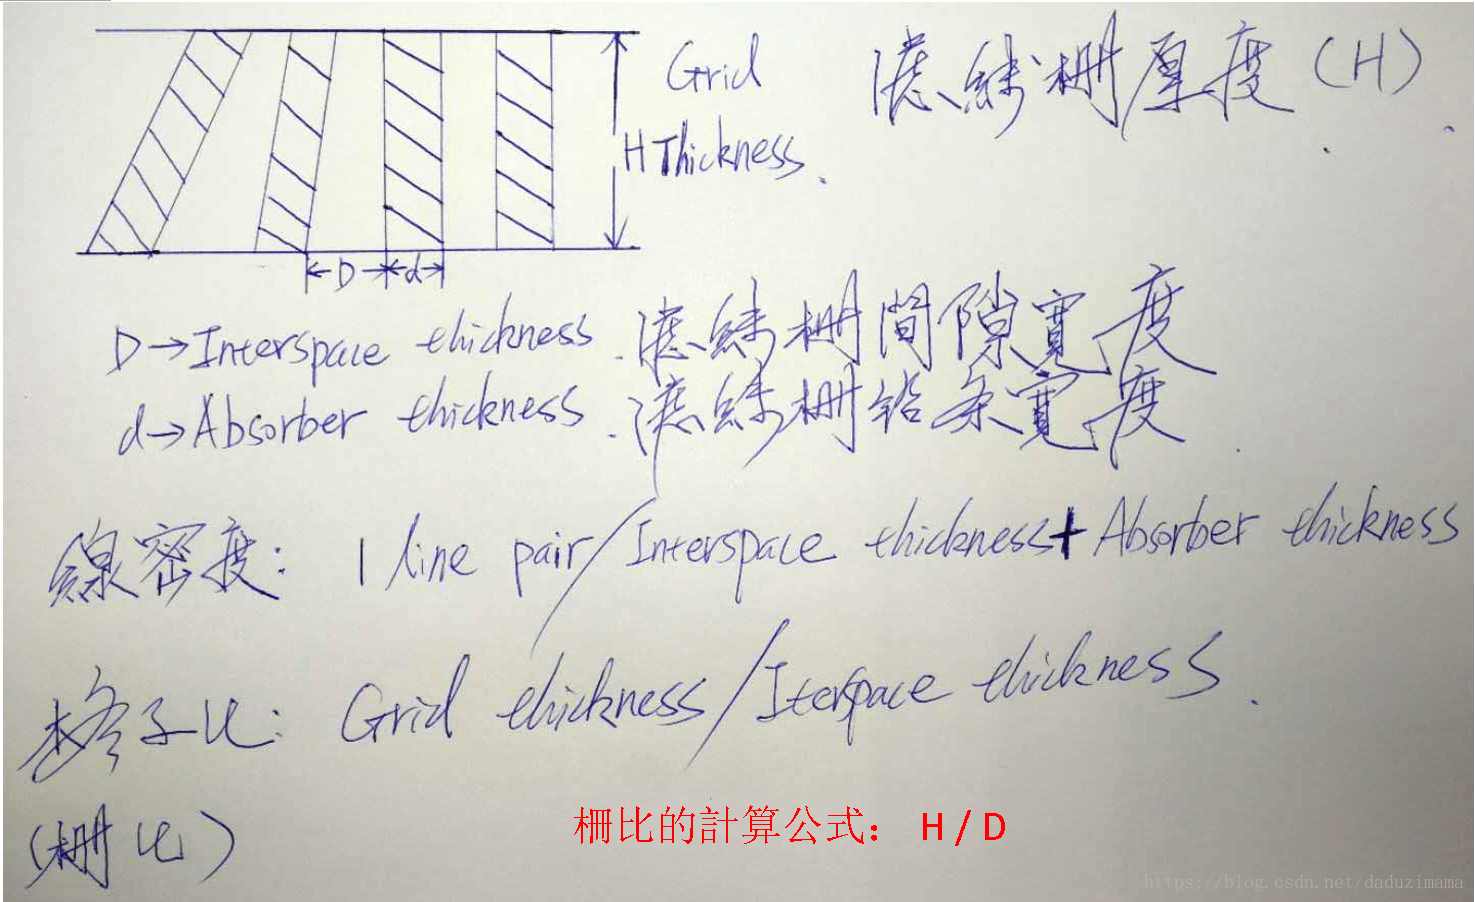 Grid 濾線柵厚度(H)
H Thickness.
D d
D→Interspace thickness. 濾線柵間隙寬度
d→Absorber thickness. 濾線柵铅条寬度
線密度: 1 line pair/Interspace thickness+Absorber thickness
格子比: Grid thickness/Iterspace thickness.
(柵比)
柵比的計算公式： H / D
https://blog.csdn.net/daduzimama